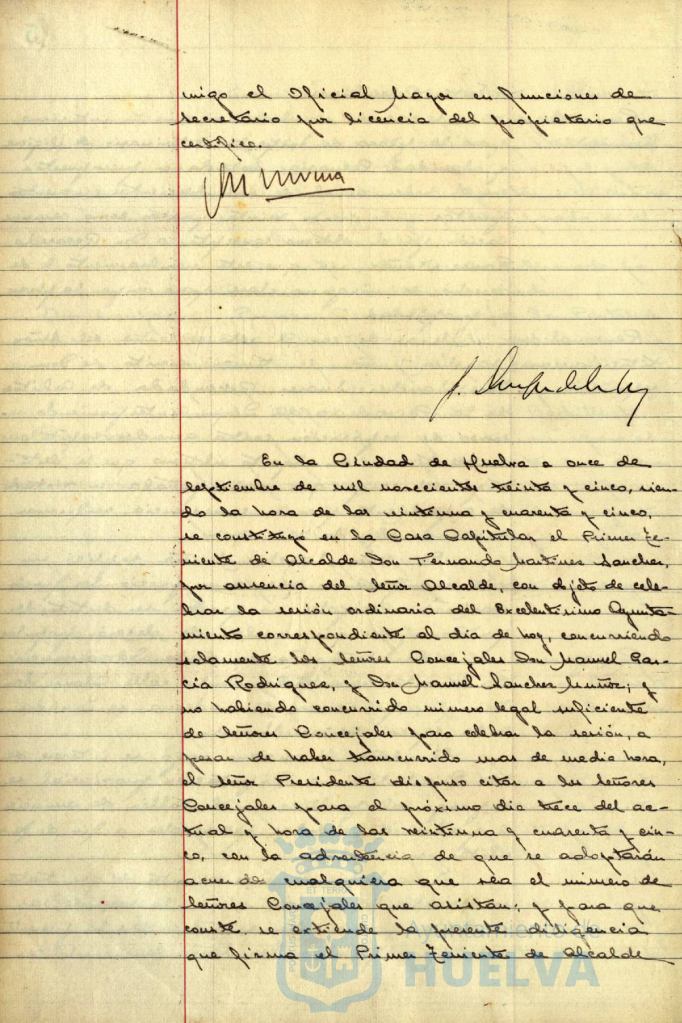 migo el Oficial Mayor en funciones de
secretario por licencia del propietario que
certifico.
En la Ciudad de Huelva a once de
septiembre de mil novecientos treinta y cinco, sien-
do la hora de las veintiuna y cuarenta y cinco,
se constituyó en la Casa Capitular el Primer Te-
niente de Alcalde Don Fernando Martinez Sanchez,
por ausencia del Señor Alcalde, con objeto de cele-
brar la sesión ordinaria del Excelentísimo Ayunta-
miento correspondiente al dia de hoy, concurriendo
solamente los Señores Concejales Don Manuel Gar-
cía Rodriguez, y Don Manuel Sanchez Muñoz; y
no habiendo concurrido número legal suficiente
de Señores Concejales para celebrar la sesión, a
pesar de haber transcurrido mas de media hora,
el Señor Presidente dispuso citar a los Señores
Concejales para el próximo dia trece del ac-
tual y hora de las veintiuna y cuarenta y cin-
co, con la advertencia de que se adoptarán
acuerdos cualquiera que sea el número de
Señores Concejales que asistan; y para que
conste se extiende la presente diligencia
que firma el Primer Teniente de Alcalde
HUELVA